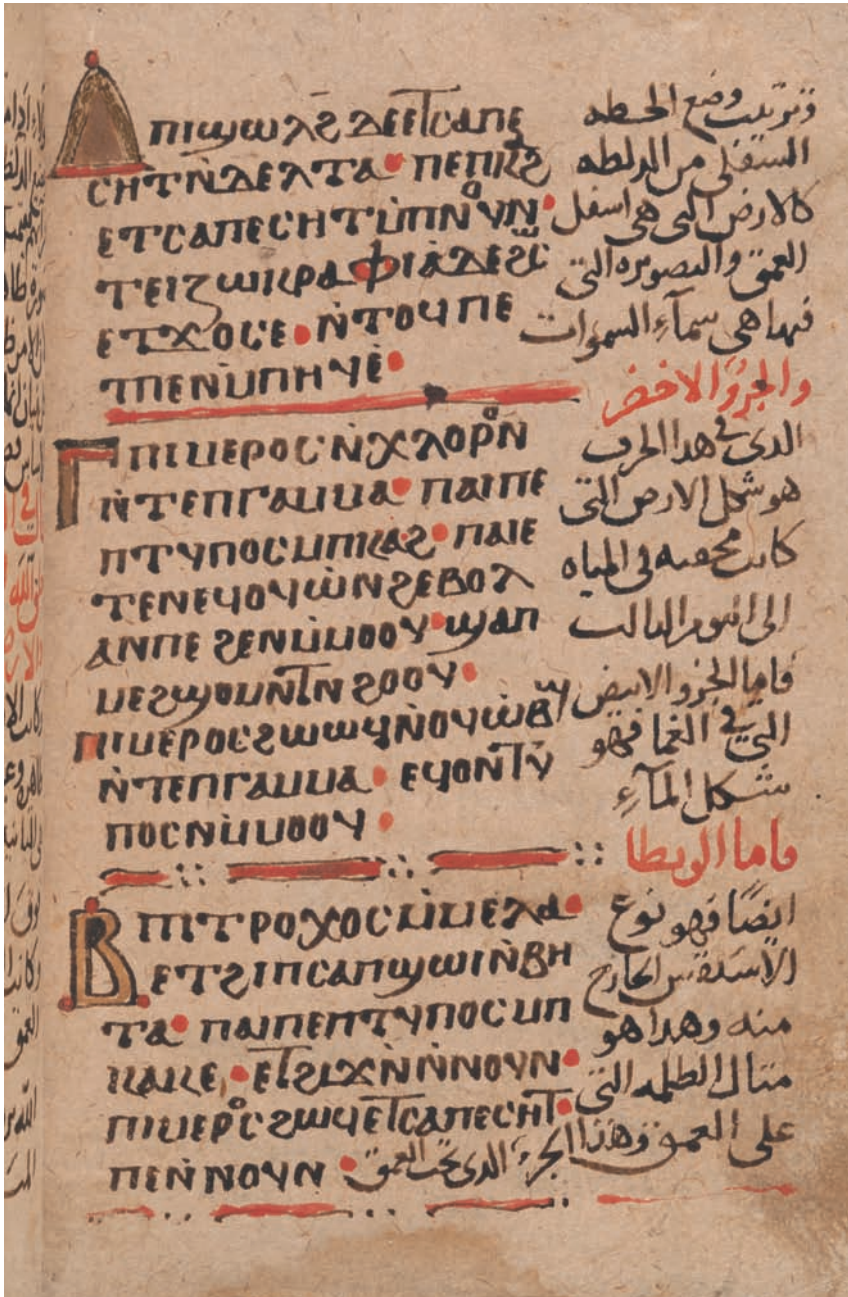 Ⲇ ⲡⲓϣⲱⲗϩ ⲇⲉ ⲉⲧⲥⲁⲡⲉ
ⲥⲏⲧ ⲛ̀ⲇⲉⲗⲧⲁ· ⲡⲉ ⲡⲕϩ
ⲉⲧⲥⲁⲡⲉⲥⲏⲧ ⲙ̀ⲡⲛⲟⲩⲛ·
ⲧⲉⲓⲍⲱⲕⲣⲁⲫⲓⲁ̀ ⲇⲉ
ⲉⲧϫⲟⲥⲉ· ⲛ̀ⲧⲟϥ ⲡⲉ
ⲧⲡⲉ ⲛⲙⲡⲏⲩⲉ̀·
Ⲅ ⲡⲓⲙⲉⲣⲟⲥ ⲛ̀ⲭⲗⲟⲣⲟⲛ
ⲛ̀ⲧⲉ ⲡⲅⲁⲙⲙⲁ· ⲡⲁⲓ ⲡⲉ
ⲡⲧⲩⲡⲟⲥ ⲙⲡⲕⲁϩ· ⲡⲁⲓ ⲉ
ⲧⲉ ⲛⲉϥⲟⲩⲱ̀ⲛϩ ⲉⲃⲟⲗ
ⲁⲛ ⲡⲉ ϩⲉⲛ ⲙ̀ⲙⲟⲟⲩ· ϣⲁ ⲡ
ⲙⲉϩϣⲟⲙⲛⲧ ⲛϩⲟⲟⲩ·
ⲡⲓⲙⲉⲣⲟⲥ ϩⲱⲱϥ ⲛ̀ⲟⲩⲱ̀ⲃϣ
ⲛ̀ⲧⲉ ⲡⲅⲁⲙⲙⲁ· ⲉϥⲟ ⲛⲧⲩ
ⲡⲟⲥ ⲛⲙ̀ⲙⲟⲟⲩ·
Ⲃ ⲡⲓⲧⲣⲟⲭⲟⲥ ⲙ̀ⲙⲉⲗⲁ·
ⲉⲧϩⲓⲡⲥⲁⲡϣⲱⲓ ⲛ̀ⲃⲏ
ⲧⲁ· ⲡⲁⲓ ⲡⲉ ⲡⲧⲩⲡⲟⲥ ⲙⲡ
ⲕⲁⲕⲉ· ⲉⲧϩⲓϫⲛ̀ ⲛ̀ⲛⲟⲩⲛ·
ⲡⲓⲙⲉⲣⲟⲥ ϩⲱϥ ⲉⲧⲥⲁⲡⲉⲥⲏⲧ·
ⲡⲉⲛ̀ⲛⲟⲩⲛ·
وترتيب وضع الخطه
السفلى من الدلطه
كالارض التى هى اسفل
العمق والتصويره التى
فيها هى سمآء السموات
والجزؤ الاخضر
الدى فى هدا الحرف
هو شكل الارض التى
كانت مخفيه فى المياه
الى اليوم التالت
فاما الجزو الابيض
التى فى الغما فهو
شكل المآء
فاما الويطا
ايضًا فهو نوع
الاسطقس الخارج
منه وهدا هو
متال الظلمه التى
على العمق وهذا
الجزء الدى تحت العمق